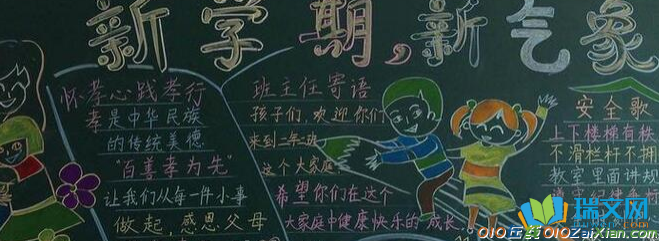 新学期,新气象
怀孝心践孝行
孝是中华民族
的传统美德
"百善孝为先"
让我们从每一件小事
做起,感恩父母
班主任寄语
孩子们,欢迎你们
来到二年
这个大家庭
希望你们在这个
大家庭中健康快乐的成长
安全歌
上下楼梯有秩
不滑栏杆不拥
教室里面讲规
瑞文网
010在线010zaixian.com